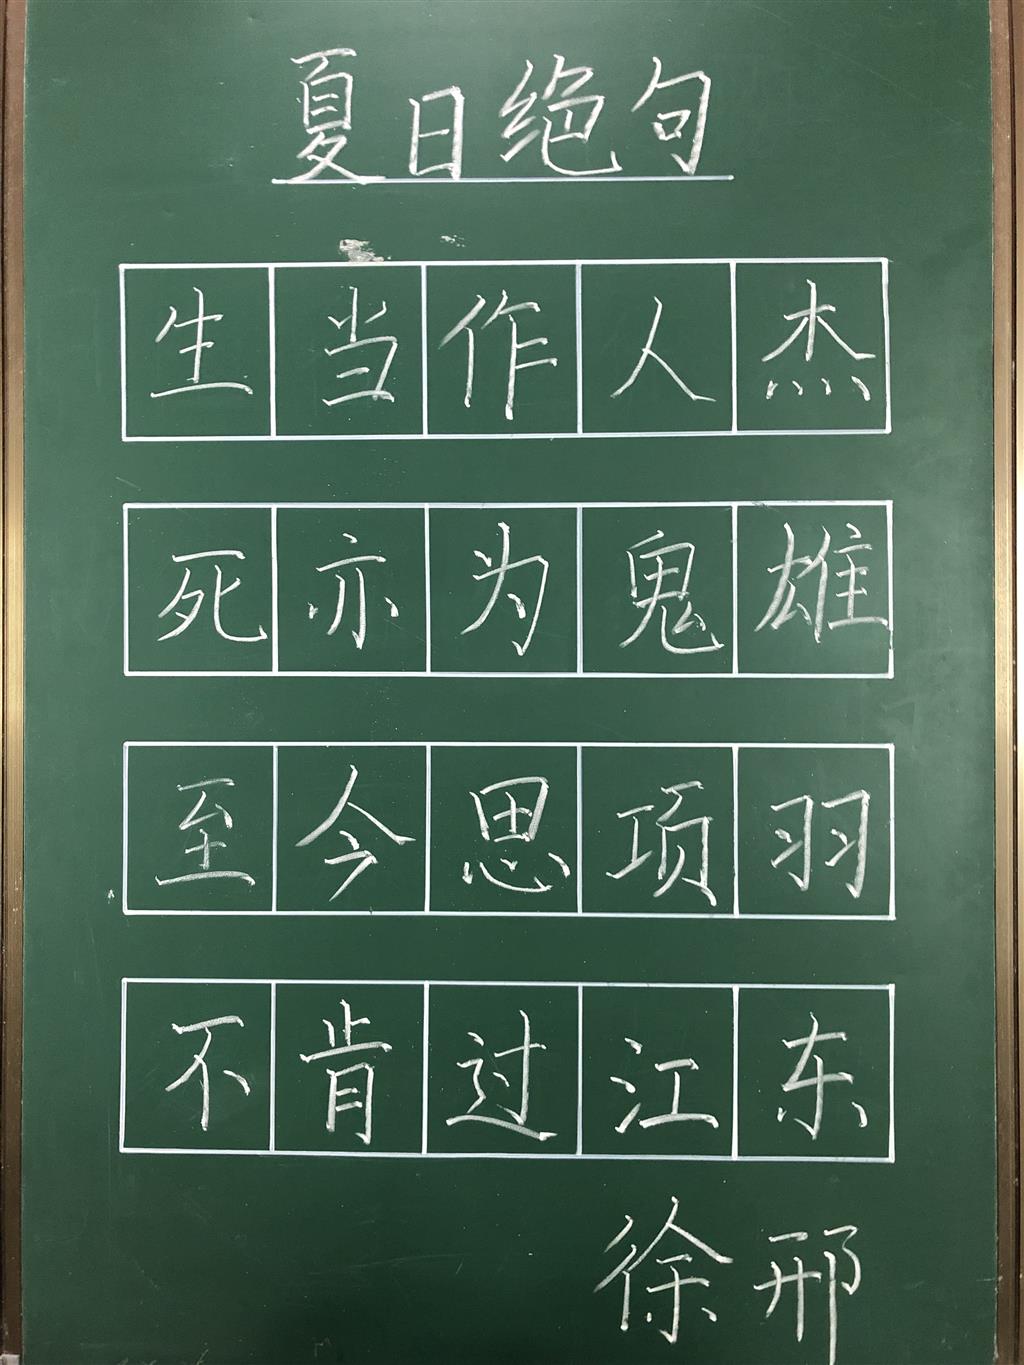 夏日绝句
生当作人杰
死亦为鬼雄
至今思项羽
不肯过江东
徐邢